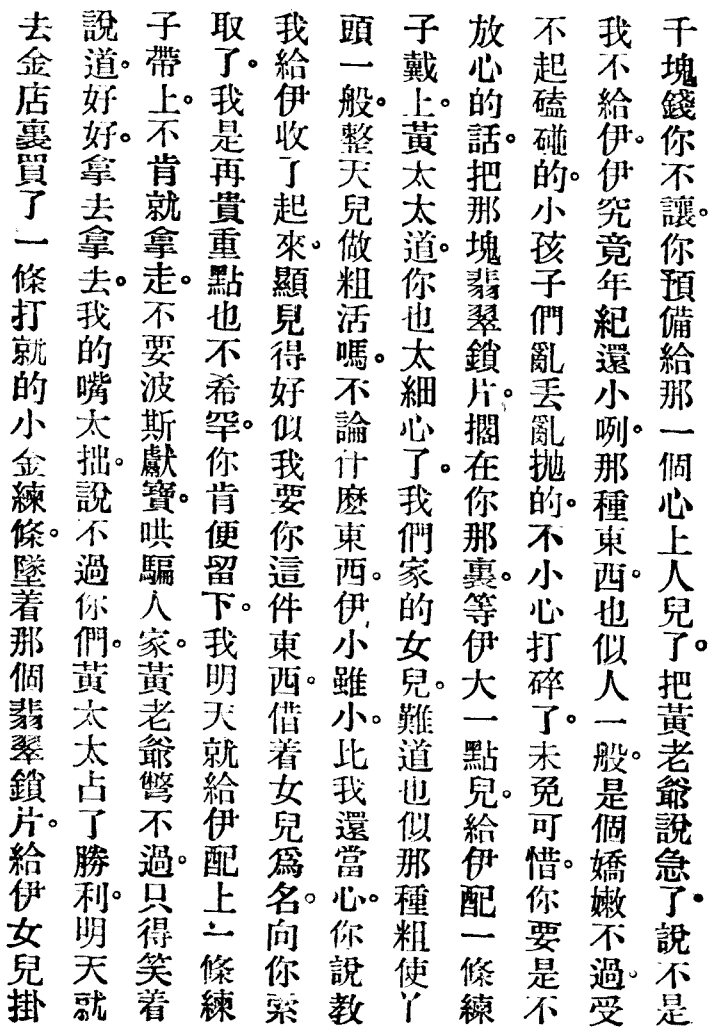 千塊錢你不讓。你預備給那一個心上人兒了。把黃老爺說急了。說不是
我不給伊。伊究竟年紀還小咧。那種東西。也似人一般。是個嬌嫩不過。受
不起磕碰的。小孩子們亂丟亂抛的。不小心打碎了。未免可惜。你要是不
放心的話。把那塊翡翠鎖片。擱在你那裏。等伊大一點兒。給伊配一條練
子戴上。黃太太道。你也太細心了。我們家的女兒。難道也似那種粗使丫
頭一般。整天兒做粗活嗎。不論什麼東西。伊小雖小。比我還當心。你說教
我給伊收了起來。顯見得好似我要你這件東西。借着女兒爲名。向你索
取了。我是再貴重點也不希罕。你肯便留下。我明天就給伊配上一條練
子帶上。不肯就拿走。不要波斯獻寶。哄騙人家。黃老爺彆不過。只得笑着
說道。好好。拿去拿去。我的嘴太拙。說不過你們。黃太太占了勝利。明天就
去金店裏買了一條打就的小金練條。墜着那個翡翠鎖片。給伊女兒掛